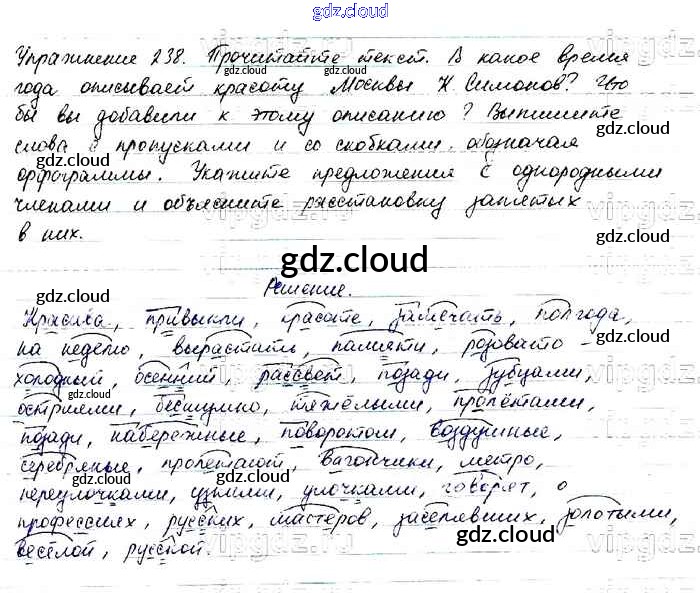 gdz.cloud
Упражнение 238. Прочитайте текст. В какое время
года описывает красоту Москвы К. Симонов? Что
бы вы добавили к этому описанию? Выпишите
слова с пропусками и со скобками, обозначая
орфограммы. Укажите предложения с однородными
членами и объясните расстановку запятых
в них.
gdz.cloud
Решение.
Красива, привыкли, красоте, замечать, полгода,
на неделю, вырастить, памяти, розовато -
холодный, осенний, рассвет, позади, зубцами,
остриями, бесшумно, тяжёлыми, пролётами,
позади, набережные, поворотом, воздушные,
серебряные, пролетают, вагончики, метро,
переулочками, узкими, улочками, говорят, о
профессиях, русских, мастеров, заселявших, золотыми,
весёлой, русской.